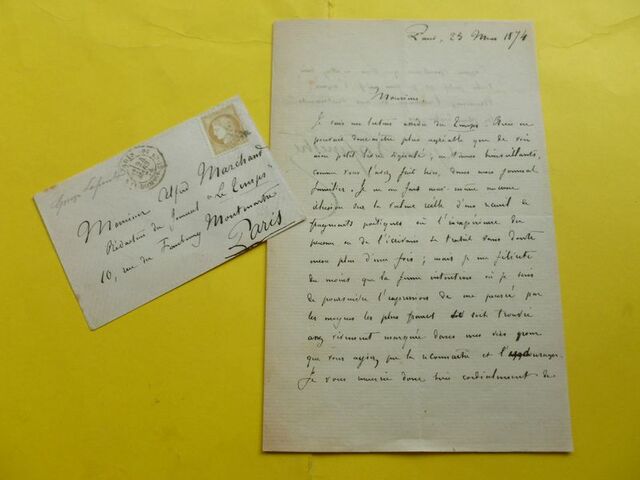 George Lafenestre
Monsieur Alfred Marchand
Rédacteur du Journal Le Temps
10, rue du Faubourg Montmartre
Paris
Paris, 25 Mars 1874
Monsieur,
Je suis un lecteur assidu du Temps. Rien ne
pouvait donc m'être plus agréable que de voir
mon petit livre signalé, en termes bienveillants,
comme vous l'avez fait hier, dans mon journal
familier. Je ne me fais moi-même aucune
illusion sur la valeur réelle d'un recueil de
fragments poétiques où l'inexpérience du
penseur ou de l'écrivain se trahit sans doute
more plus d'une fois ; mais je me félicite
du moins que la ferme intention où je suis
de poursuivre l'expression de ma pensée par
les moyens les plus francs soit trouvée
assez vivement marquée dans mes vers pour
que vous ayez pu la reconnaître et l'encourager.
Je vous remercie donc bien cordialement de